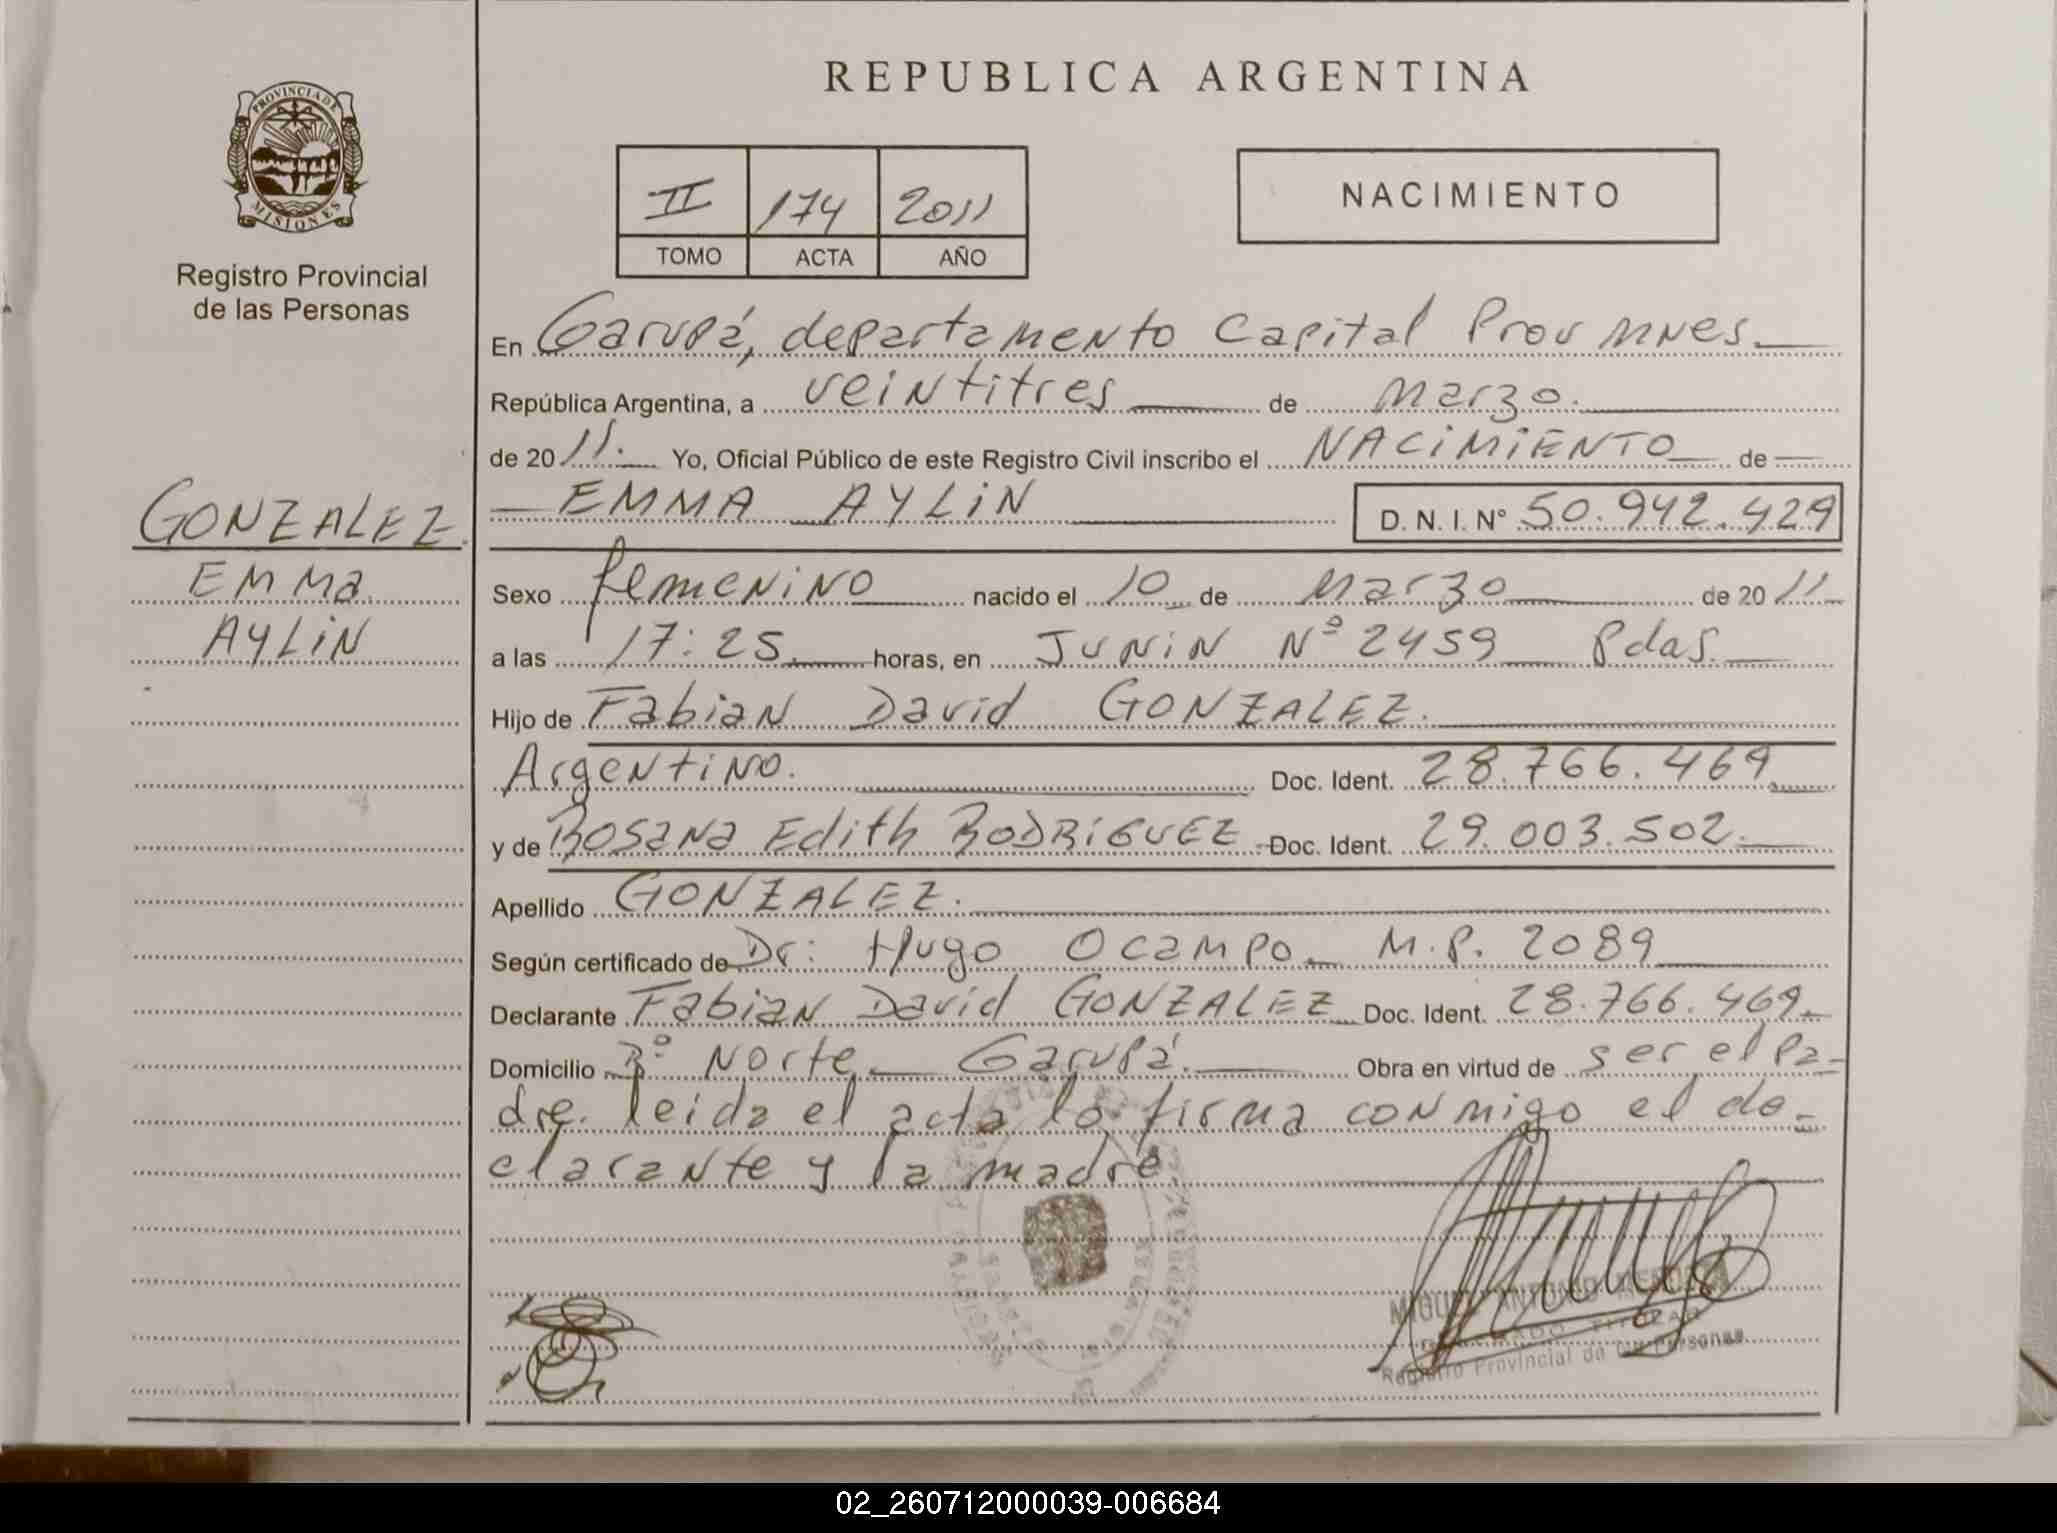 REPUBLICA ARGENTINA
PROVINCIA DE
MISIONES
Registro Provincial
de las Personas
II 174 2011
TOMO ACTA AÑO
NACIMIENTO
GONZALEZ.
EMMA
AYLIN
En Garupá, departamento Capital Prov MNES.
República Argentina, a veintitres de Marzo.
de 2011. Yo, Oficial Público de este Registro Civil inscribo el NACIMIENTO de
EMMA AYLIN D. N. I. N° 50.942.429
Sexo femenino nacido el 10 de Marzo de 2011
a las 17:25 horas, en JUNIN Nº 2459 Pdas.
Hijo de Fabian David GONZALEZ.
Argentino. Doc. Ident. 28.766.469
y de ROSANA Edith RODRIGUEZ Doc. Ident. 29.003.502.
Apellido GONZALEZ.
Según certificado de Dr: Hugo Ocampo M.P. 2089
Declarante Fabian David GONZALEZ Doc. Ident. 28.766.469
Domicilio Bº Norte Garupá. Obra en virtud de ser el pa-
dre. leida el acta la firma conmigo el de-
clarante y la madre
MIGUEL ANTONIO
TITULAR
Registro Provincial de las Personas
02_260712000039-006684